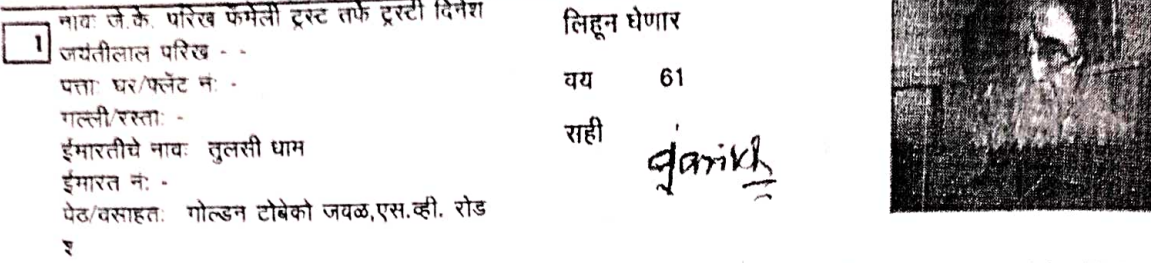 1
नावः जे.के. परिख फॅमेली ट्रस्ट तर्फे ट्रस्टी दिनेश
जयंतीलाल परिख - -
पत्ताः घर/फ्लॅट नंः -
गल्ली/रस्ताः -
ईमारतीचे नावः तुलसी धाम
ईमारत नंः -
पेठ/वसाहतः गोल्डन टोबेको जवळ,एस.व्ही. रोड
लिहून घेणार
वय 61
सही